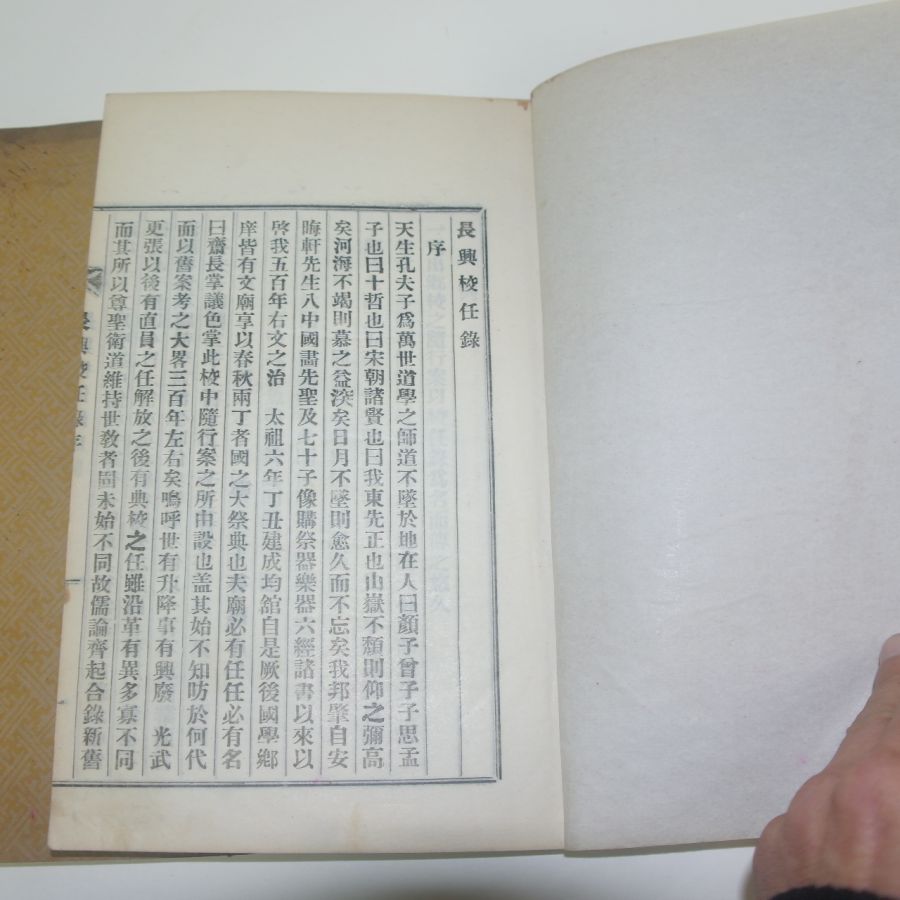 長興校任錄
序
天生孔夫子爲萬世道學之師道不墜於地在人曰顔子曾子子思孟
子也曰十哲也曰宋朝諸賢也曰我東先正也山嶽不頹則仰之彌高
矣河海不竭則慕之益深矣日月不墜則愈久而不忘矣我邦肇自安
晦軒先生入中國畵先聖及七十子像購祭器樂器六經諸書以來以
啓我五百年右文之治 太祖六年丁丑建成均舘自是厥後國學鄕
庠皆有文廟享以春秋兩丁者國之大祭典也夫廟必有任任必有名
曰齋長掌議色掌此校中隨行案之所由設也盖其始不知昉於何代
而以舊案考之大畧三百年左右矣嗚呼世有升降事有興廢 光武
更張以後有直員之任解放之後有典校之任雖沿革有異多寡不同
而其所以尊聖衛道維持世敎者固未始不同故儒論齊起合錄新舊
長興校任錄序